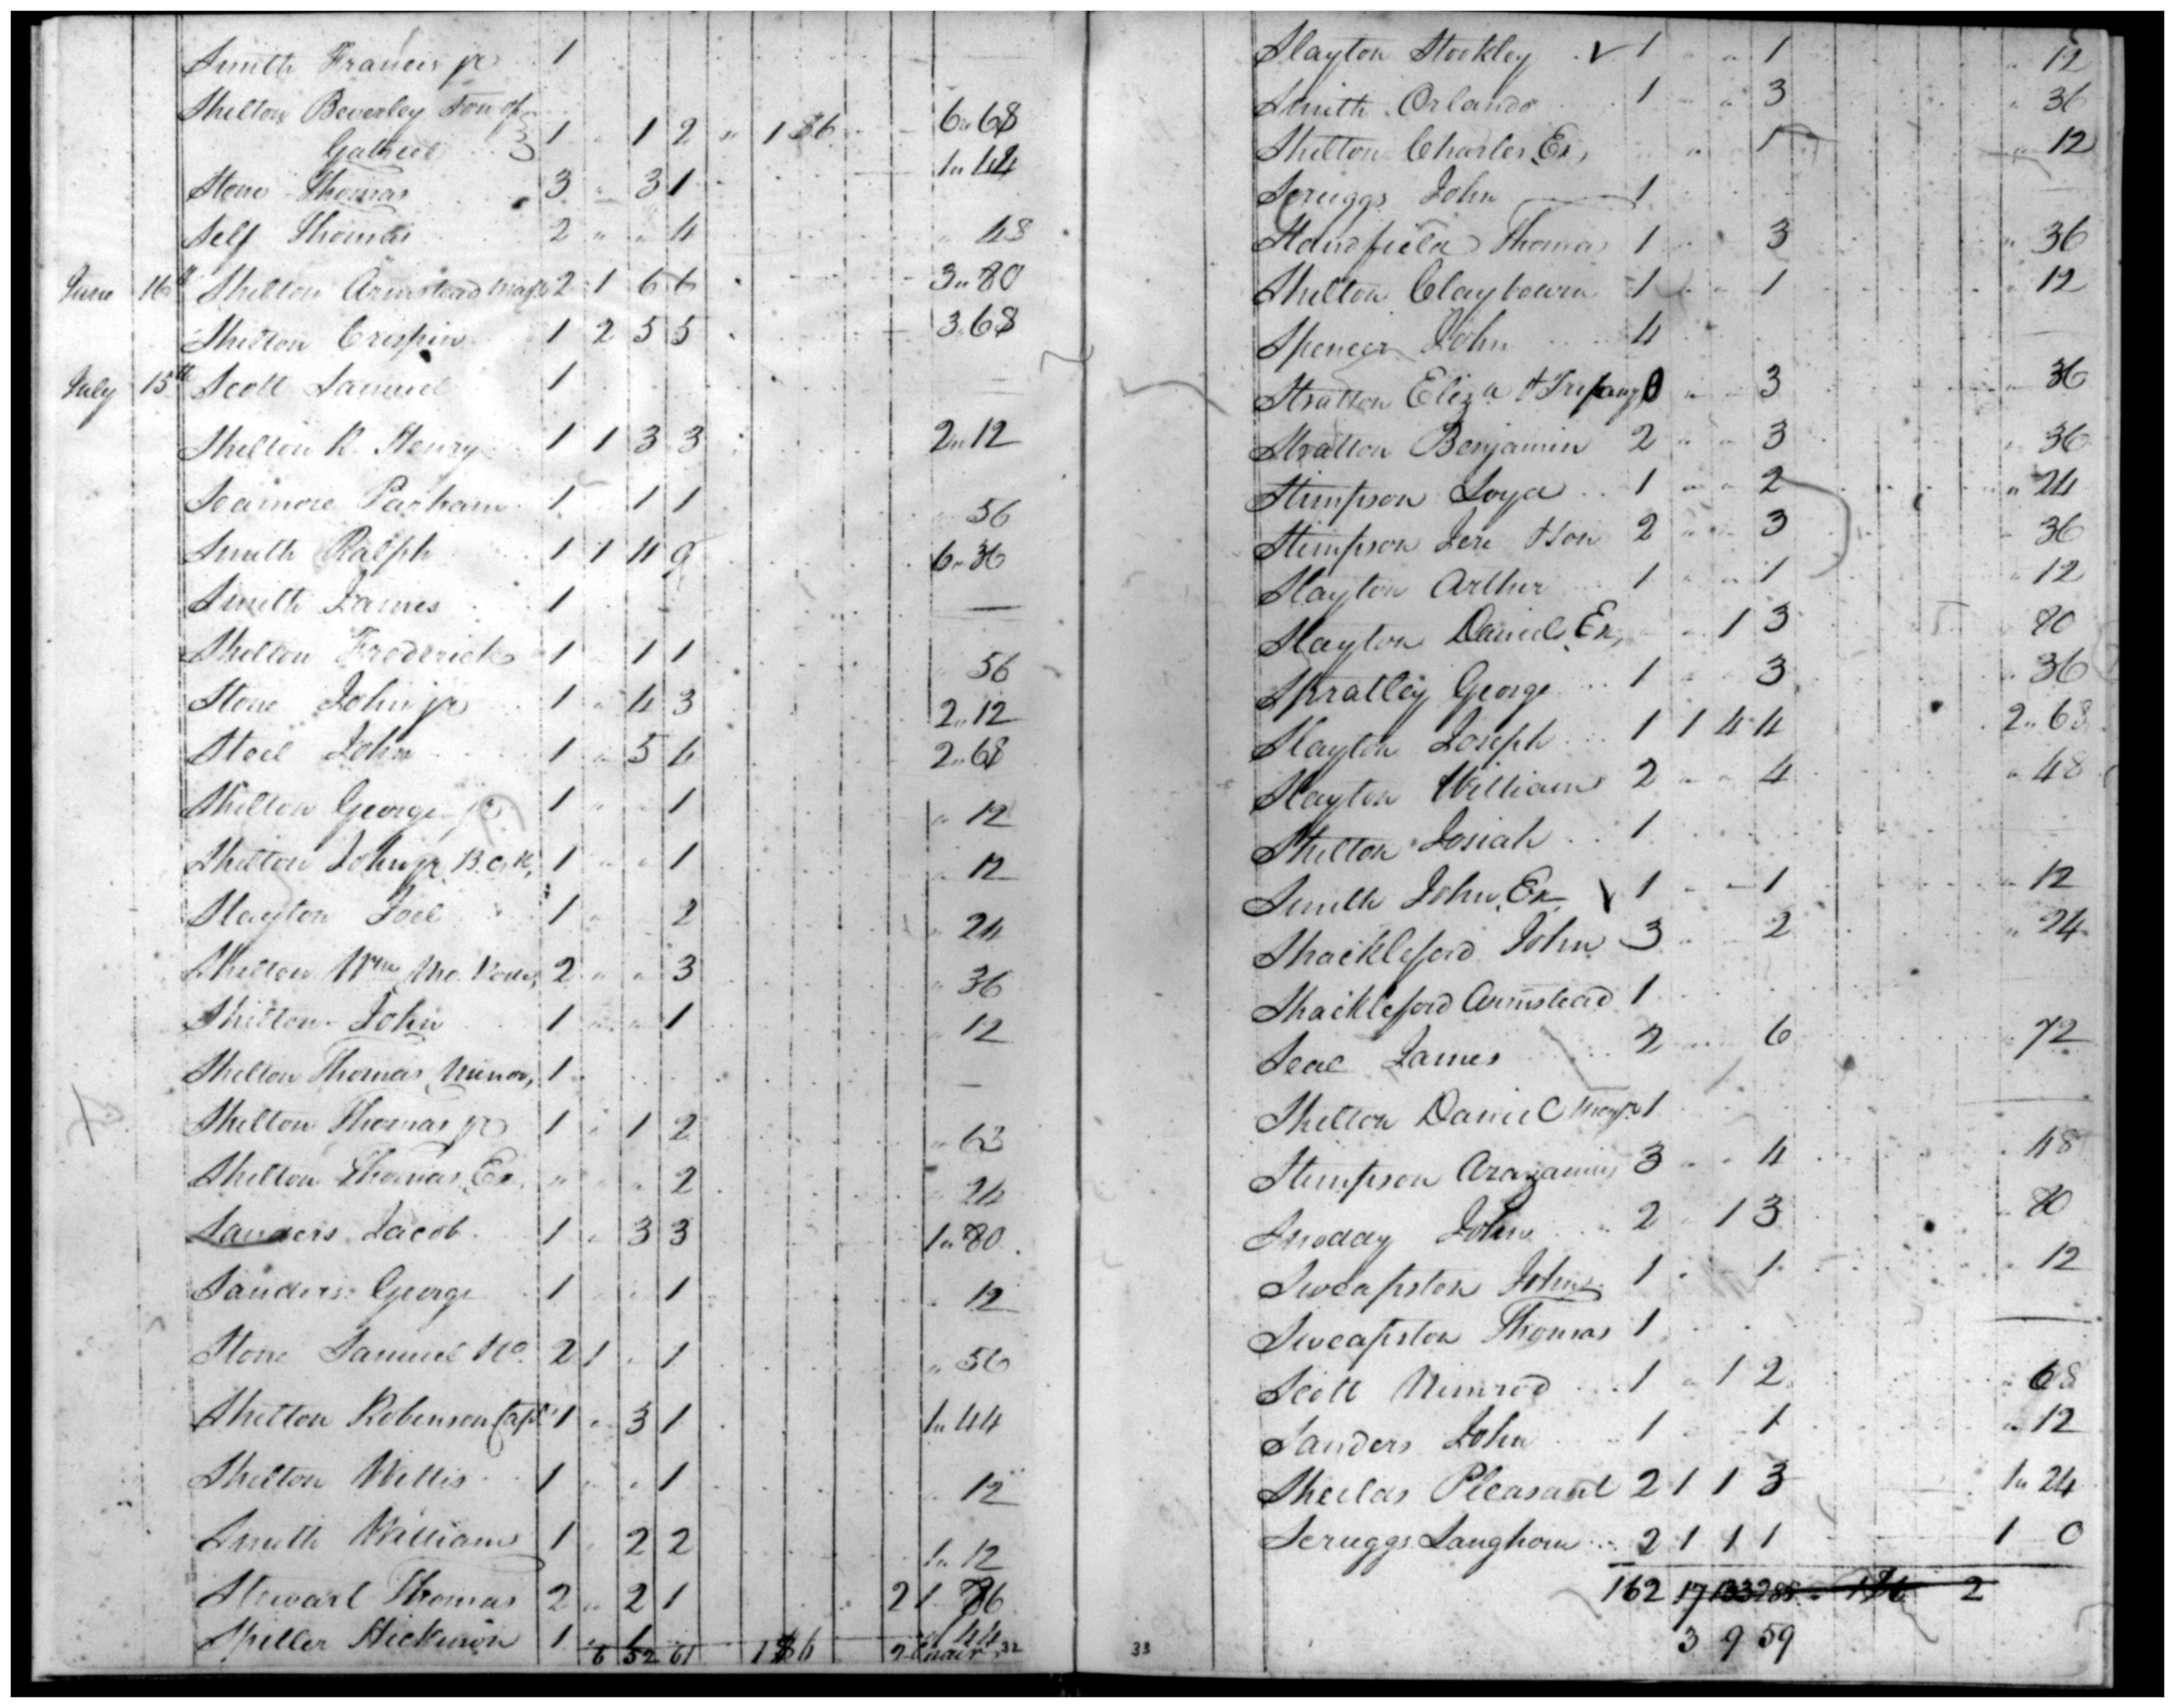 Smith Francis jr 1
Shelton Beverley son of
Gabriel 1 " 1 2 " 1 86 6 " 68
Stone Thomas 3 " 3 1 1 " 44
Self Thomas 2 " " 4 " 48
June 16th Shelton Armstead majr 2 1 6 6 3 " 80
Shelton Crispin 1 2 5 5 3 68
July 15th Scott Samuel 1
Shelton R. Henry 1 1 3 3 2 " 12
Seamore Parham 1 1 1 56
Smith Ralph 1 1 11 9 6 " 36
Smith James 1 —
Shelton Frederick 1 1 1 56
Stone John jr 1 " 4 3 2 " 12
Steel John 1 " 5 4 2 " 68
Shelton George jr 1 " " 1 " 12
Shelton John jr 1 " " 1 " 12
Slayton Joel 1 " 2 " 24
Shelton Wm 2 " " 3 " 36
Shelton John 1 " " 1 " 12
Shelton Thomas Minor, 1 —
Shelton Thomas jr 1 " 1 2 " 68
Shelton Thomas, Ex. " " 2 " 24
Sanders Jacob 1 " 3 3 1 " 80
Sanders George 1 " " 1 " 12
Stone Samuel 2 1 " 1 " 56
Shelton Robenson Capt 1 " 3 1 1 " 44
Shelton Willis 1 " " 1 " 12
Smith William 1 " 2 2 1 " 12
Stewart Thomas 2 " 2 1 2 1 86
Spiller Hickmon 1 " 1 " 44
6 52 61 1 86 2 32
Slayton Stokley √ 1 " " 1 " 12
Smith Orlando 1 " " 3 " 36
Shelton Charles, Ex, " 1 " 12
Scruggs John 1
Standfield Thomas 1 " 3 " 36
Shelton Claybourn 1 " " 1 " 12
Spencer John 4 —
Stratton Eliza 0 " " 3 " 36
Stratton Benjamin 2 " " 3 " 36
Stimpson Loyd 1 " " 2 " 24
Stimpson Jere & son 2 " " 3 " 36
Slayton Arther 1 " " 1 " 12
Slayton Daniel, Ex, " 1 3 80
Spratley George 1 " " 3 " 36
Slayton Joseph 1 1 4 4 2 " 68
Slayton William 2 " " 4 " 48
Shelton Josiah 1
Smith John, Ex √ 1 " " 1 " 12
Shackleford John 3 " 2 " 24
Shackleford Armstead 1
Seal James 2 " 6 72
Shelton Daniel majr 1 —
Stimpson 3 " " 4 " 48
Snoday John 2 " 1 3 " 80
Sweapston John 1 " 1 " 12
Sweapston Thomas 1 —
Scott Nimrod 1 " 1 2 " 68
Sanders John 1 " 1 " 12
Sheilds Pleasant 2 1 1 3 1 " 24
Scruggs Langhorn 2 1 1 1 1 0
162 17 133 285 " 186 2
33 3 9 59